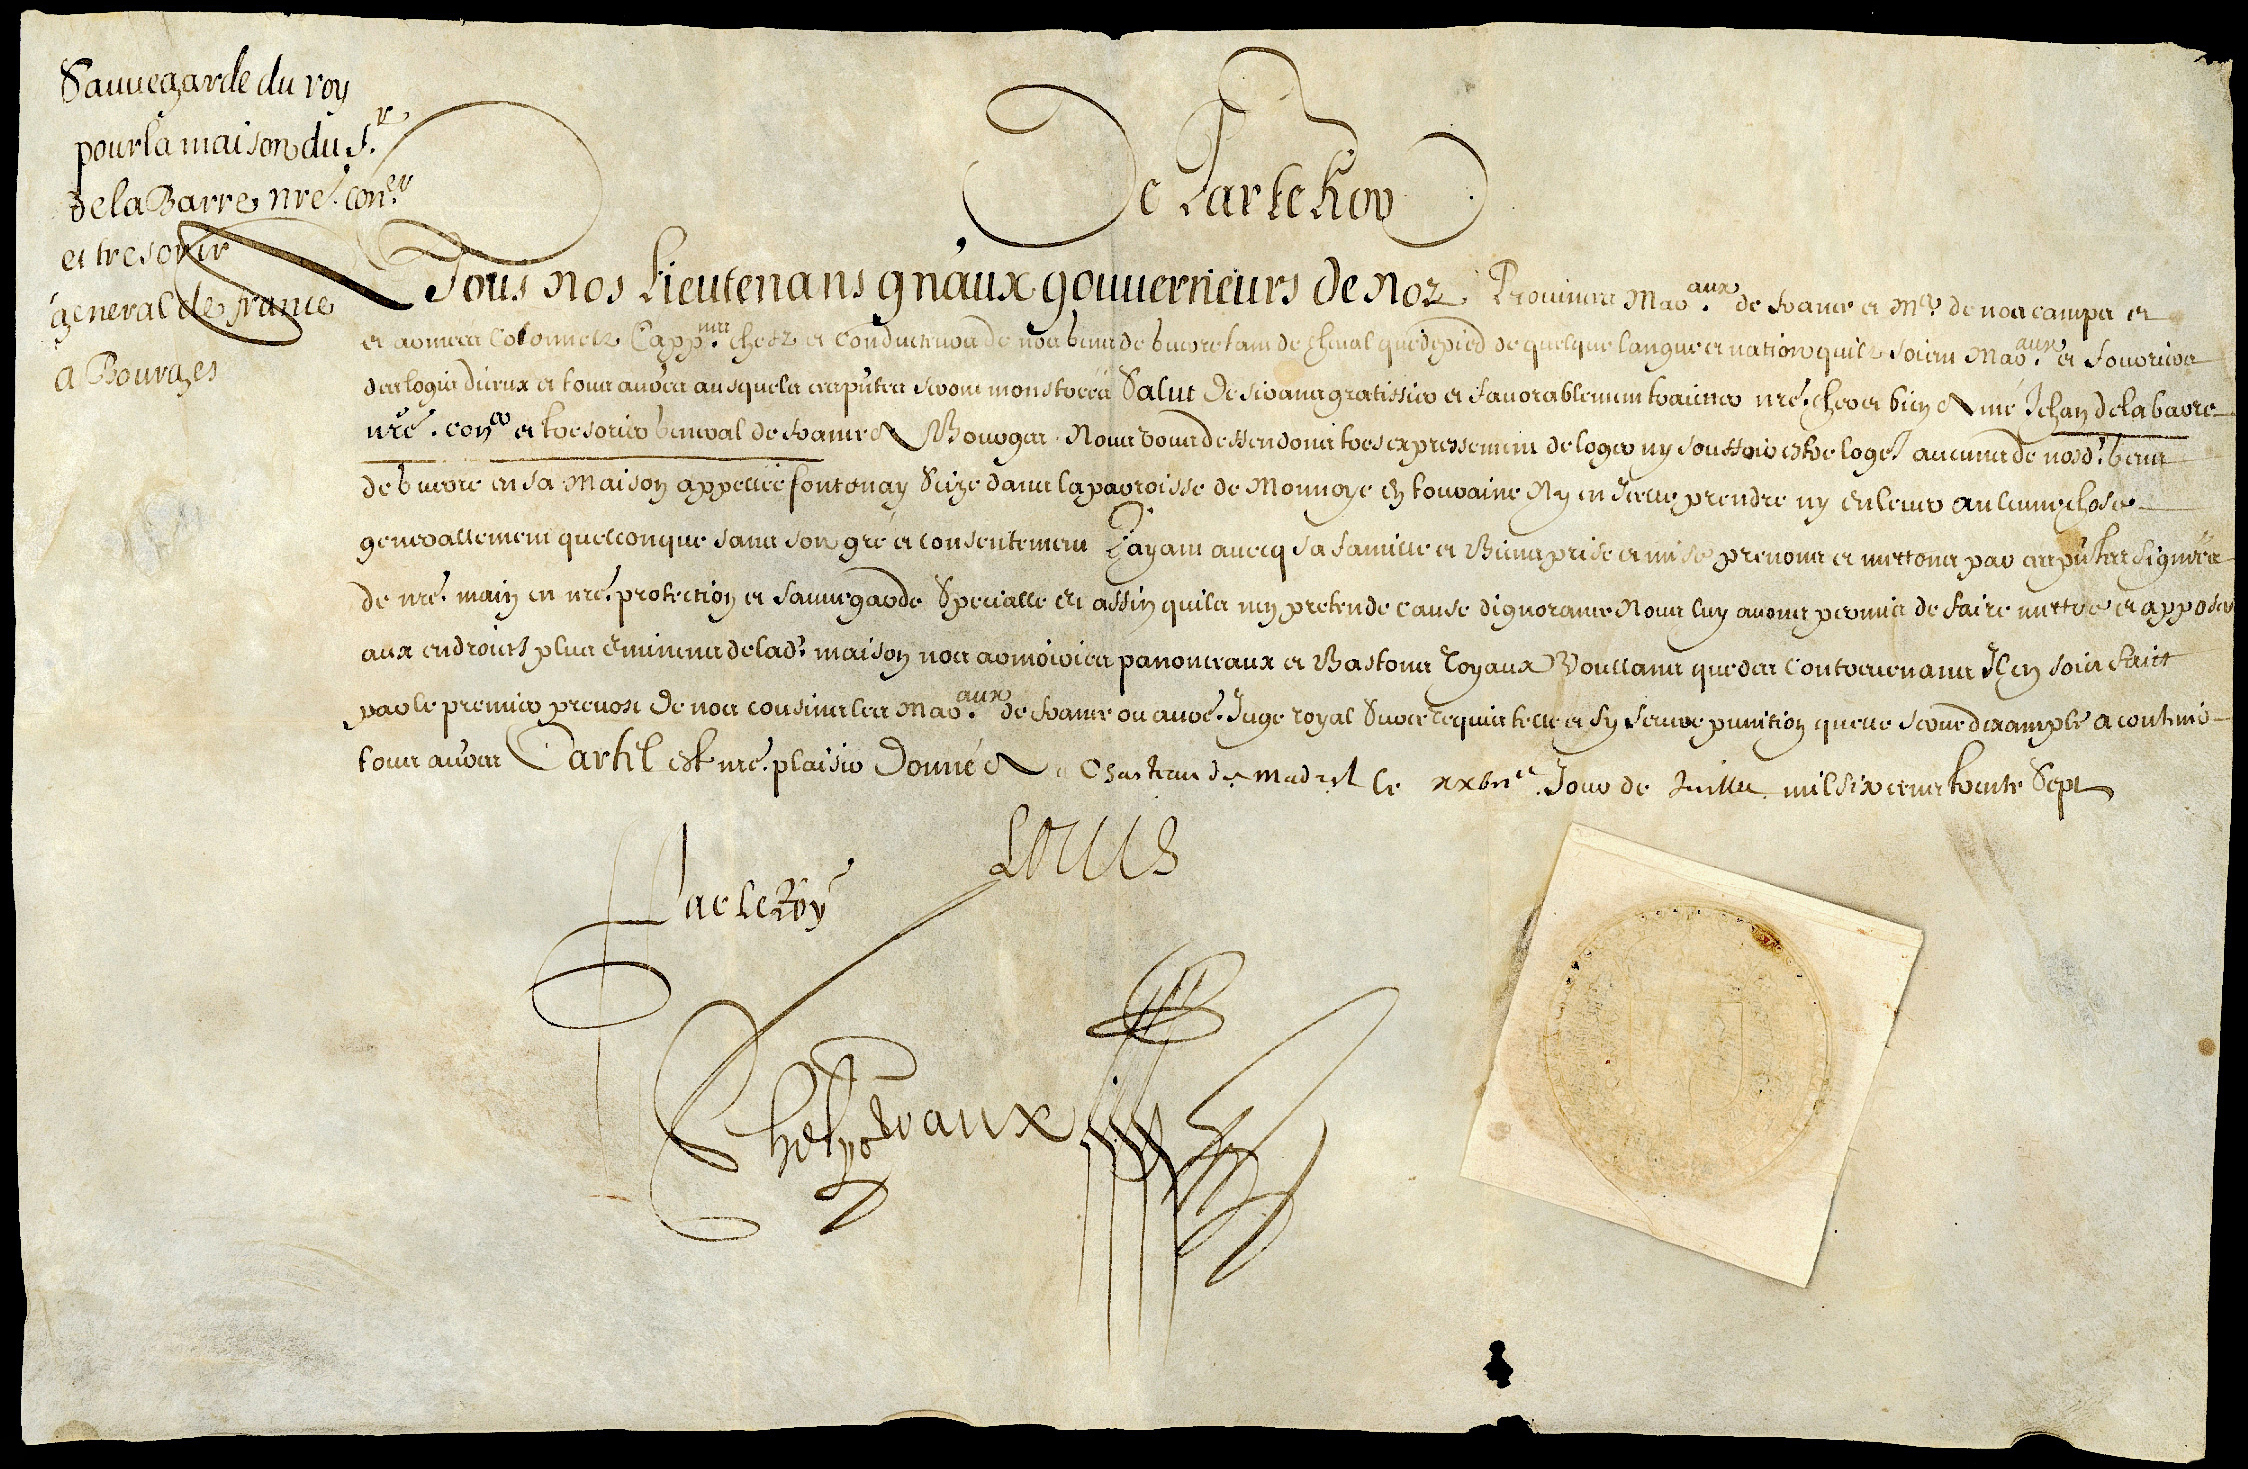 Sauuegarde du roy
pour la maison du S.r
de la Barre nre. con.er
et tresorier
general de france
a Bourges
De Par le Roy
A Tous nos Lieutenans gnaux gouuerneurs de Noz Prouinces Mar.aux de france et M.es de nos camps et
et armees Colonnelz Capp.nes chefz et conducteurs de nos gens de guerre tant de cheual que de pied de quelque langue et nation quilz soient Mar.aux et fourriers
des logis diceux et tous autres ausquels ces pntes seront monstrees Salut Desirans gratiffier et fauorablement traicter nre. cher et bien amé Jehan de la barre
nre. con.er et tresorier general de france a Bourges Nous vous deffendons tres expressement de loger ny souffrir estre logé aucuns de nosd. gens
de guerre en sa maison appellée fontenay Scize dans la parroisse de Monnoye en touraine Ny en Icelle prendre ny enleuer aulcune chose
generallement quelconque sans son gré et consentement Layant auecq sa famille et Biens prise et mise prenons et mettons par ces pntes signées
de nre. main en nre. protection et sauuegarde Specialle Et affin quils nen pretende cause dignorance Nous luy auons permis de faire mettre et apposer
aux endroicts plus eminens de lad. maison nos armoiries panonceaux et Bastons royaux Voullans que des contreuenans Il en soit faict
par le premier preuost de nos cousins les Mar.aux de france ou autre Juge royal Sur ce requis telle et sy seuere punition quelle serue dexample a
tous autres Car tel est nre. plaisir Donné a Chasteau de Madril le Jour de Juillet mil six cens trente Sept
Louis
Par le Roy
Phelypeaux